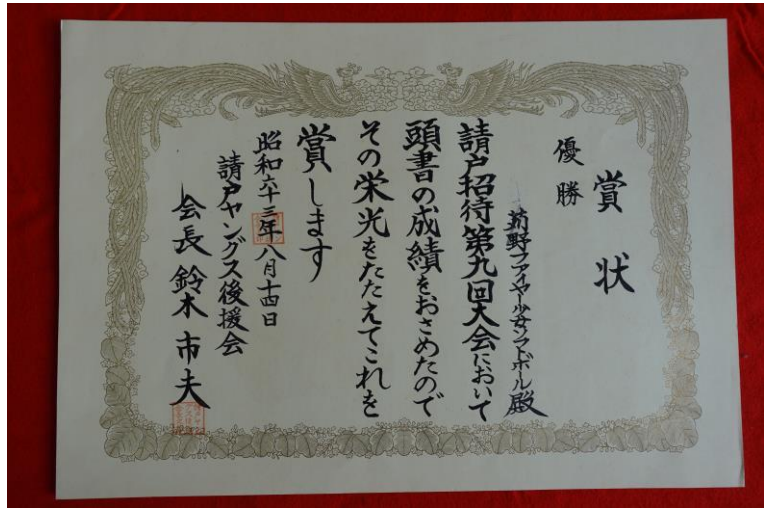 賞状
優勝
苅野ファイヤー少女ソフトボール殿
請戸招待第九回大会において
頭書の成績をおさめたので
その栄光をたたえてこれを
賞します
昭和六十三年八月十四日
請戸ヤングス後援会
会長 鈴木市夫